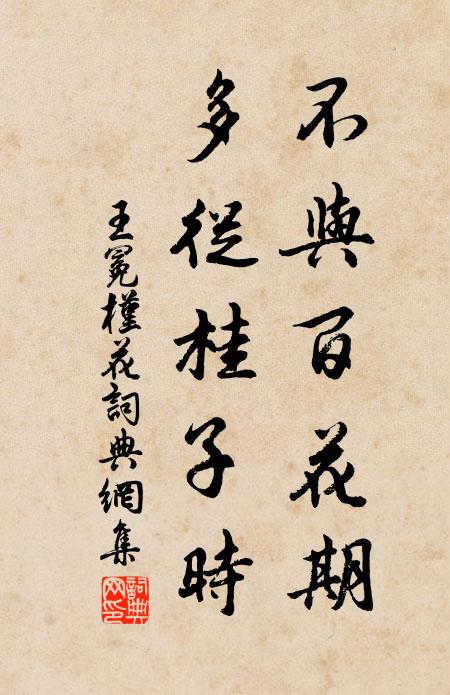 不與百花期
多從桂子時
王冕槿花詞典網集
詞典
网印